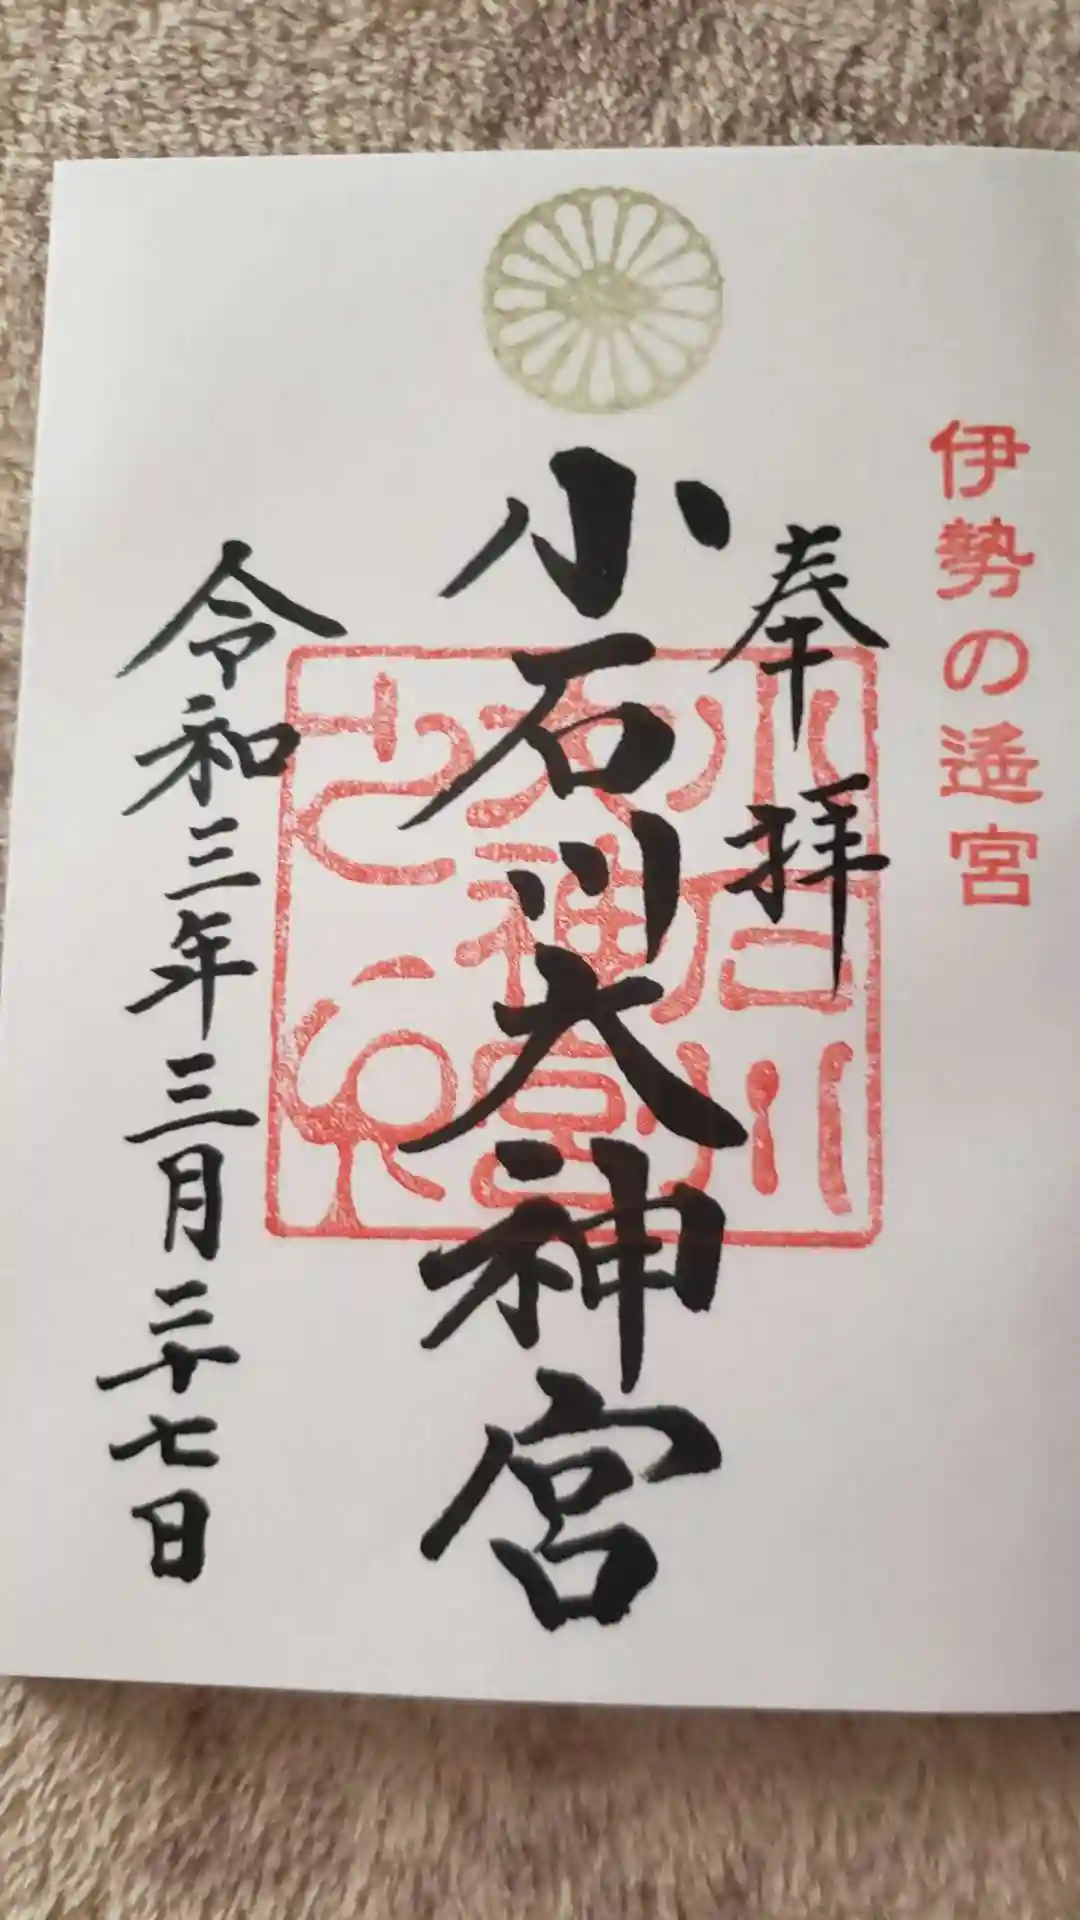 伊勢の遥宮
奉拝
小石川大神宮
小石川大神宮之印
令和三年三月二十七日